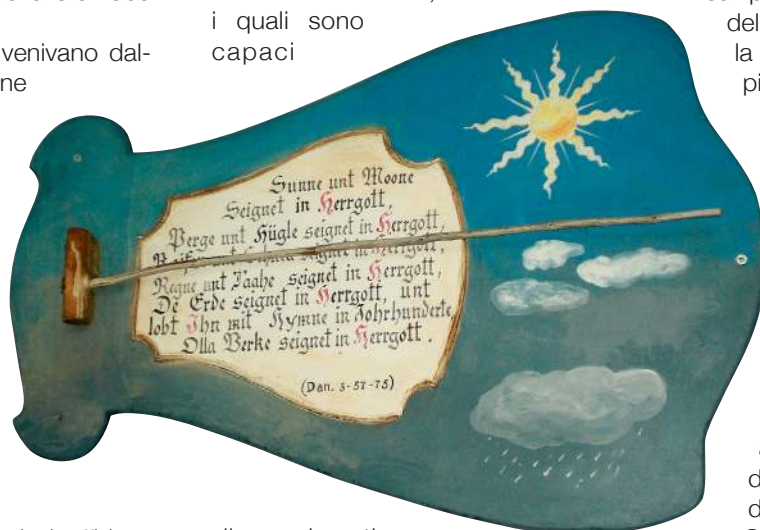 i quali sono
capaci
venivano dal-
ne
del
la
pi
Sunne unt Moone
Seignet in Herrgott,
Perge unt Hügle seignet in Herrgott,
seignet in Herrgott,
Regne unt Taahe seignet in Herrgott,
De Erde seignet in Herrgott, unt
lobt Ihn mit Hymne in Johrhunderte,
Olla Berke seignet in Herrgott.
(Dan. 3-57-75)
d
d